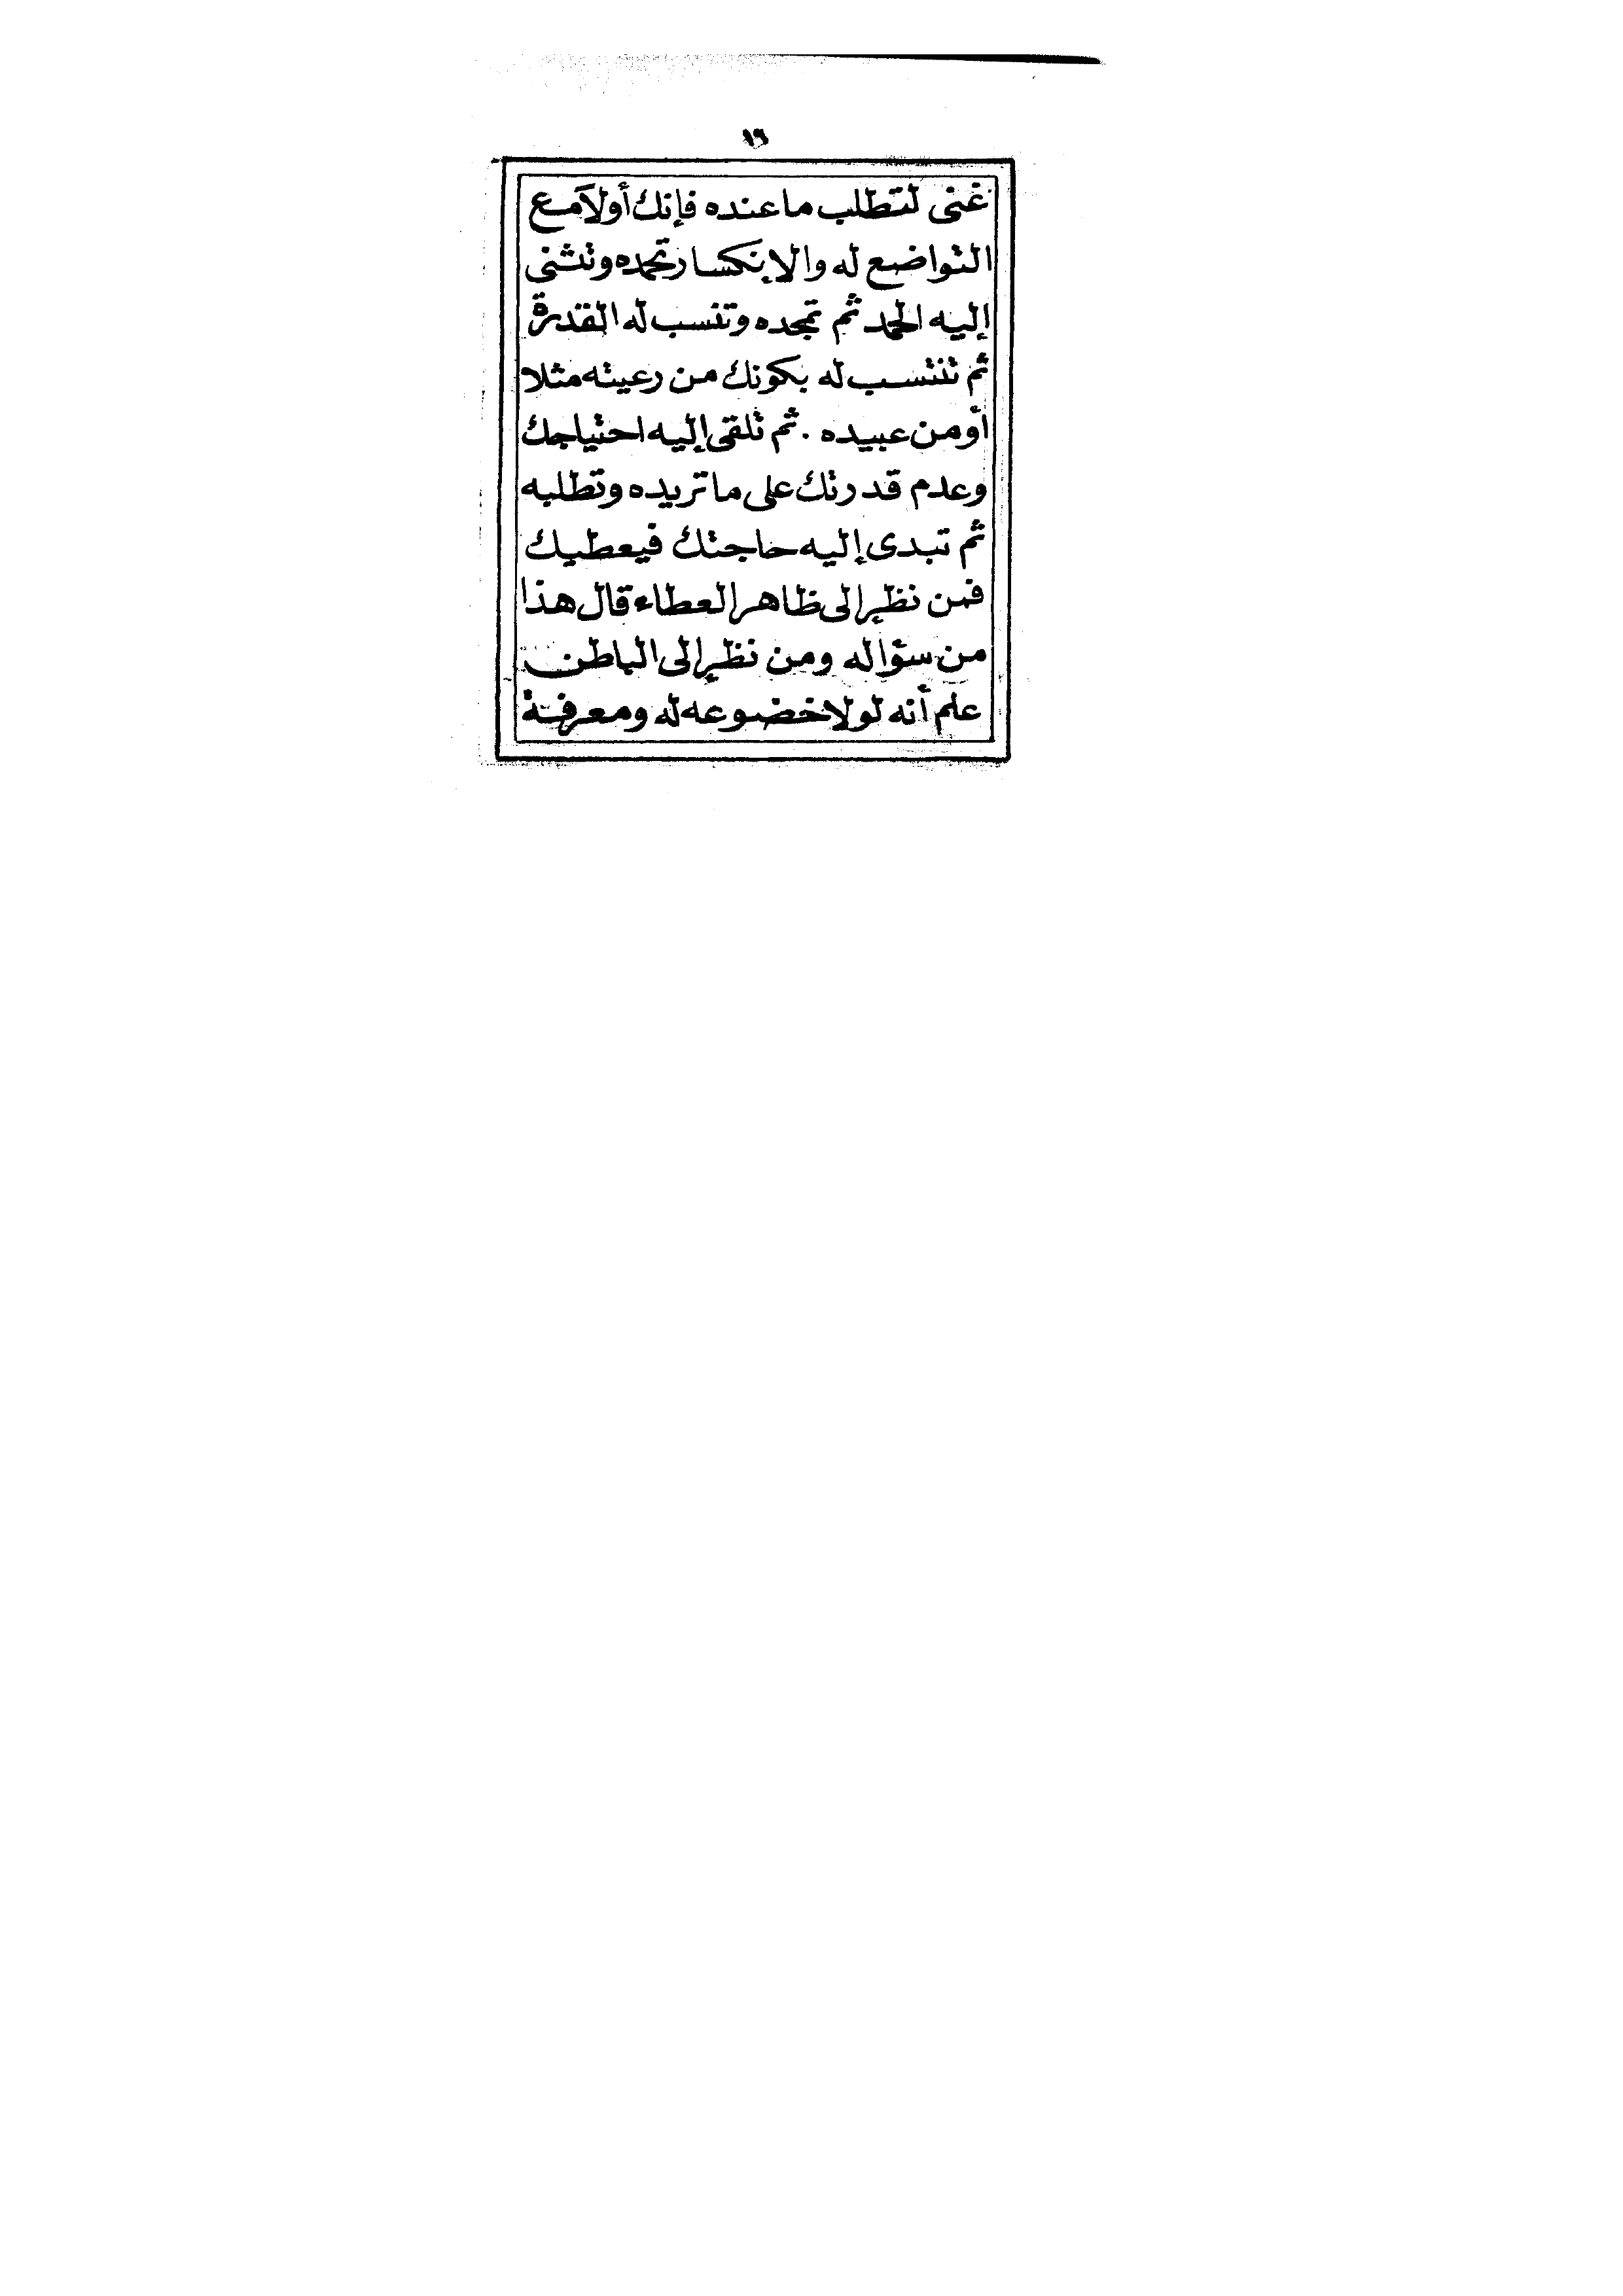 ١٩
غنى لتطلب ما عنده فإنك أولاً مع
التواضع له والإنكسار تحمده وتثنى
إليه الحمد ثم تمجده وتنسب له القدرة
ثم تنتسب له بكونك من رعيته مثلا
أو من عبيده . ثم تلقى إليه احتياجك
وعدم قدرتك على ما تريده وتطلبه
ثم تبدى إليه حاجتك فيعطيك
فمن نظر إلى ظاهر العطاء قال هذا
من سؤاله ومن نظر إلى الباطن
علم أنه لولا خضوعه له ومعرفة